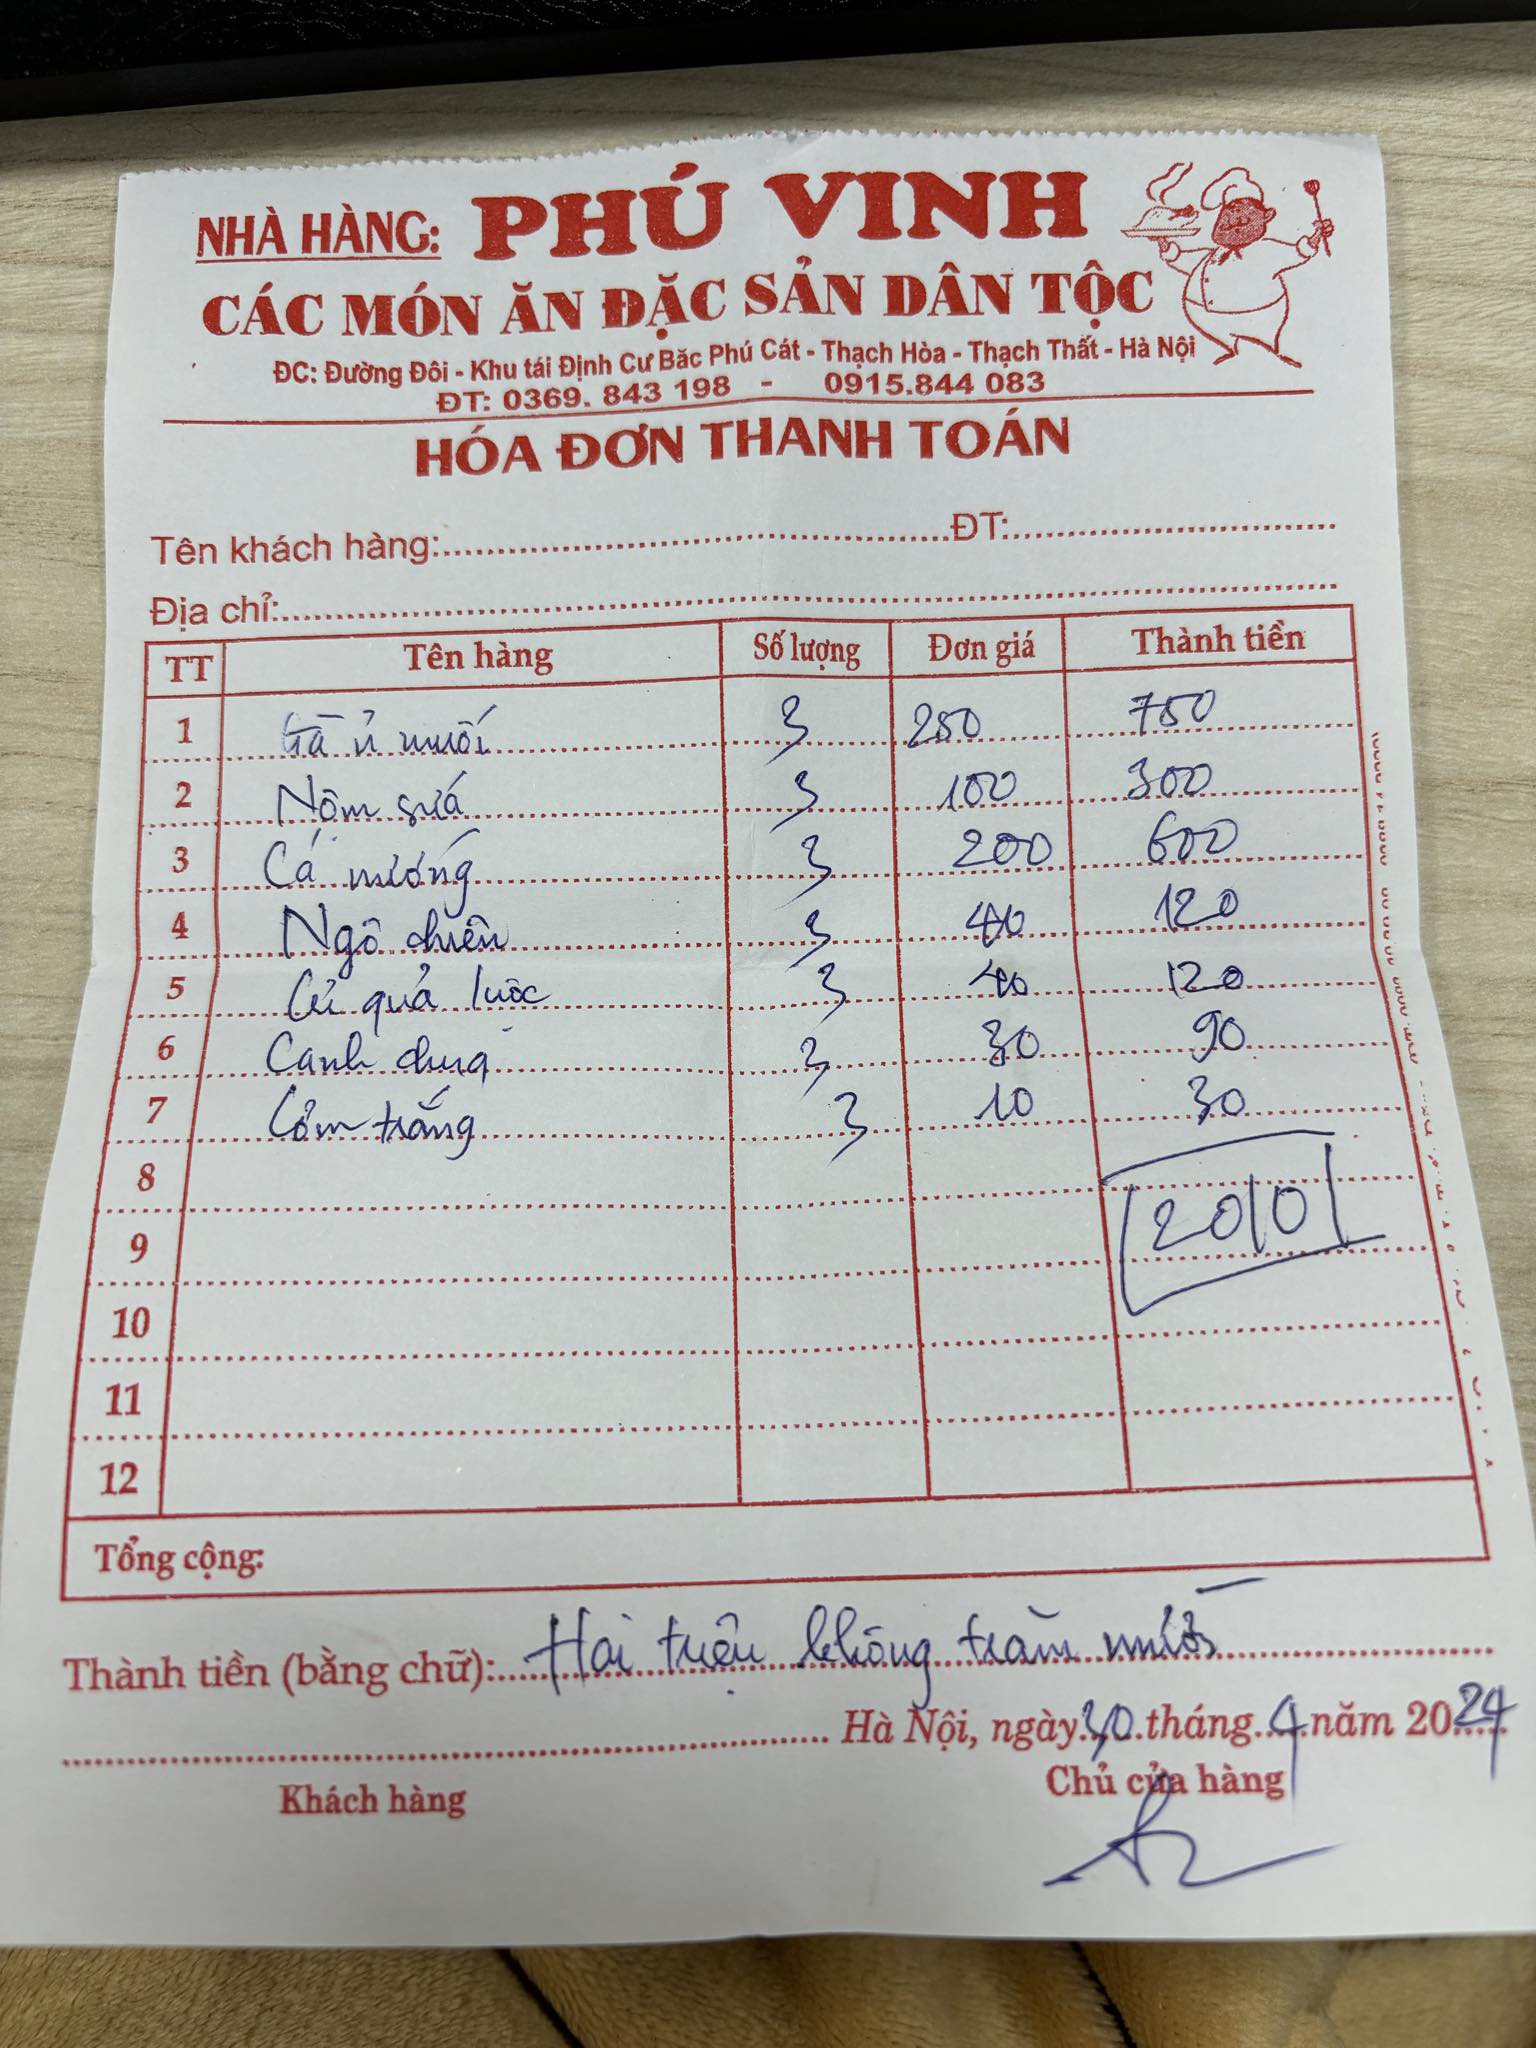 NHÀ HÀNG: PHÚ VINH
CÁC MÓN ĂN ĐẶC SẢN DÂN TỘC
ĐC: Đường Đôi - Khu tái Định Cư Băc Phú Cát - Thạch Hòa - Thạch Thất - Hà Nội
ĐT: 0369. 843 198 - 0915.844 083
HÓA ĐƠN THANH TOÁN
Tên khách hàng: ĐT:
Địa chỉ:
TT Tên hàng Số lượng Đơn giá Thành tiền
1 Gà ủ muối 3 250 750
2 Nộm sứa 3 100 300
3 Cá nướng 3 200 600
4 Ngô chiên 3 40 120
5 Củ quả luộc 3 40 120
6 Canh chua 3 30 90
7 Cơm trắng 3 10 30
8
9 2010
10
11
12
Tổng cộng:
Thành tiền (bằng chữ): Hai triệu không trăm mười
Hà Nội, ngày 30 tháng 4 năm 2024
Khách hàng Chủ cửa hàng